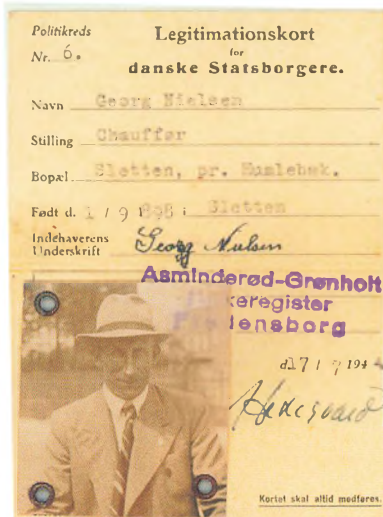 Politikreds
Nr. 6.
Legitimationskort
for
danske Statsborgere.
Navn Georg Nielsen
Stilling Chauffør
Bopæl Sletten, pr. Humlebæk.
Født d. 1 / 9 1898 i Sletten
Indehaverens
Underskrift Georg Nielsen
Asminderød-Grønholt
keregister
Fredensborg
d. 17 / 194
Kortet skal altid medføres.